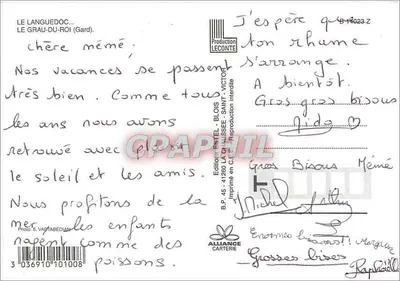 LE LANGUEDOC...
LE GRAU-DU-ROI (Gard).
chère mémé,
Nos vacances se passent
très bien. Comme tous
les ans nous avons
retrouvé avec plaisir
le soleil et les amis.
Nous profitons de la
mer les enfants
nagent comme des
poissons.
3 036910 101008
Production
LECONTE
B.P. 45 - 41260 LA CHAUSSEE-SAINT-VICTOR
Imprimé en C.E.E. - Reproduction interdite
GRAPHIL
ALLIANCE
CARTERIE
J'espère que
ton rhume
s'arrange.
A bientôt.
Gros gros bisous
Gros Bisous Mémé
Michel
Enormes bisous!! Morgane
Grosses bises
Raphaëlle